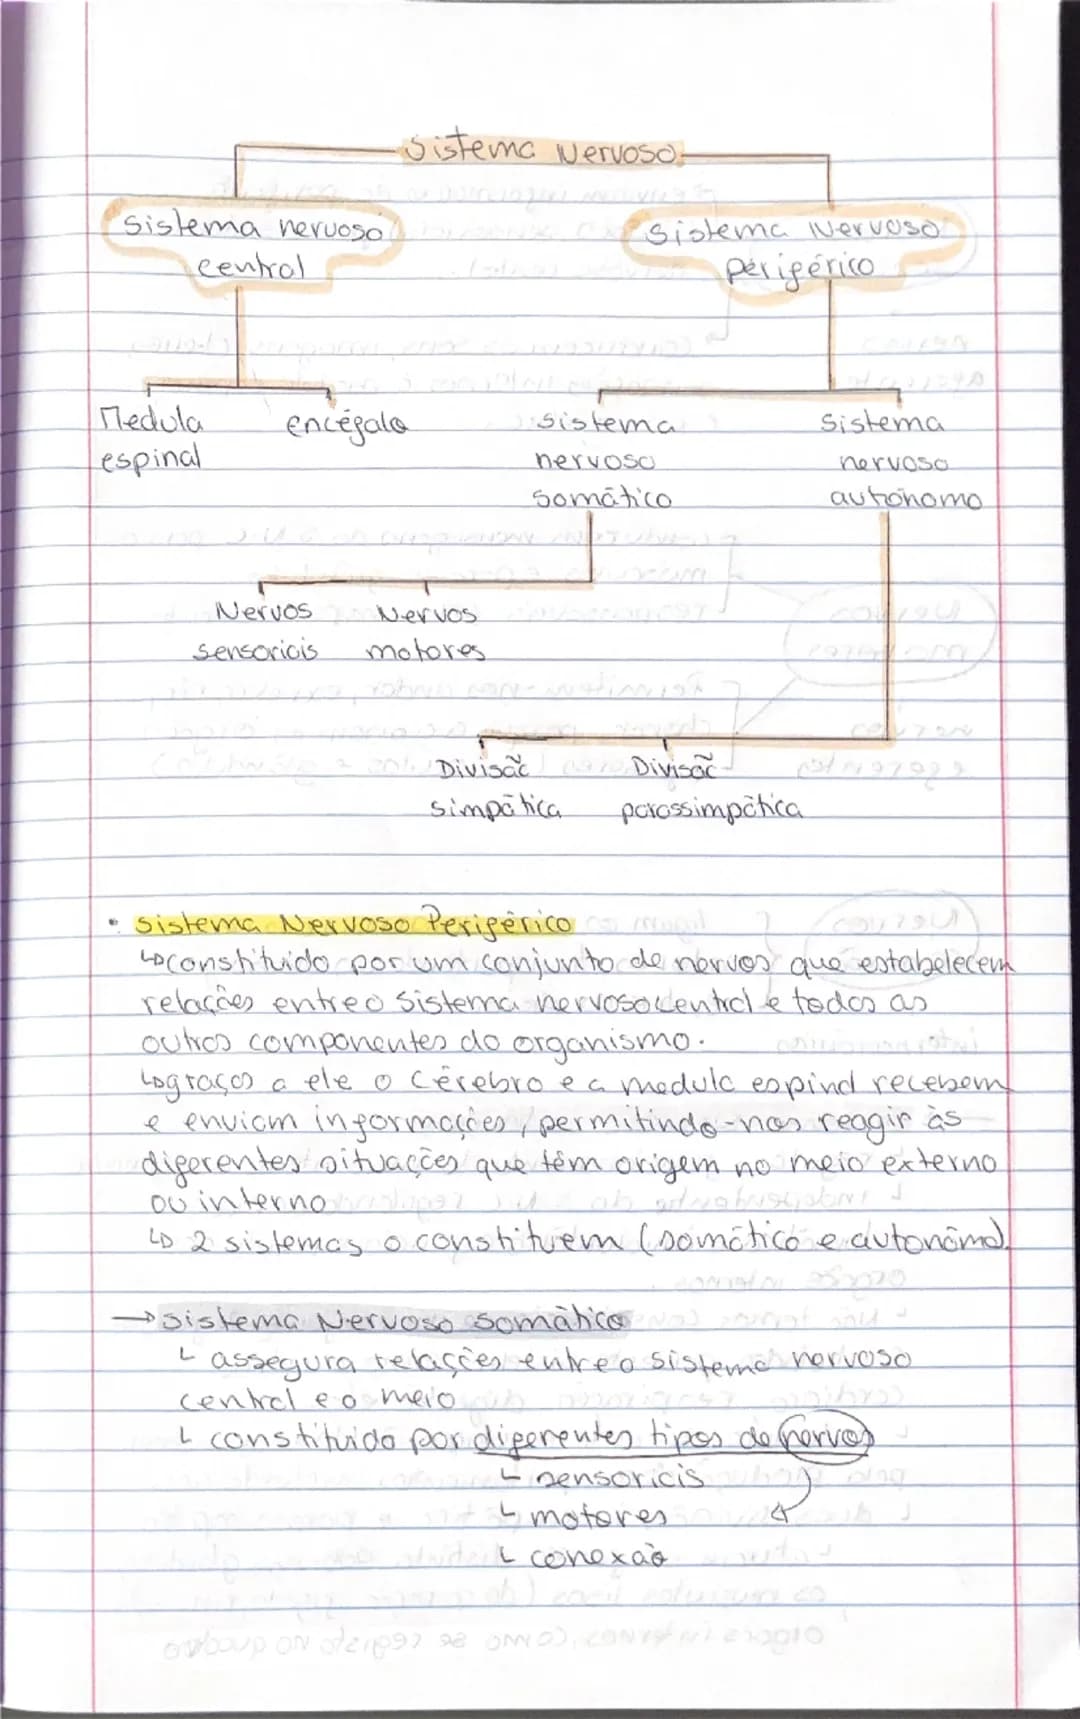 Sistema Nervoso
Sistema nervoso central
Sistema Nervoso periférico
Medula espinal
encéfalo
Sistema nervoso somático
Sistema nervoso autónomo
Nervos sensoriais
Nervos motores
Divisão simpática
Divisão parassimpática
• Sistema Nervoso Periférico
↳ constituido por um conjunto de nervos que estabelecem
relações entre o sistema nervoso central e todos os
outros componentes do organismo.
↳ graças a ele o cérebro e a medula espinal recebem
e enviam informações, permitindo-nos reagir às
diferentes situações que têm origem no meio externo
ou interno
↳ 2 sistemas o constituem (somático e autonómo).
→ Sistema Nervoso Somático
↳ assegura relações entre o sistema nervoso
central e o meio
↳ constituido por diferentes tipos de nervos
↳ sensoriais
↳ motores
↳ conexão